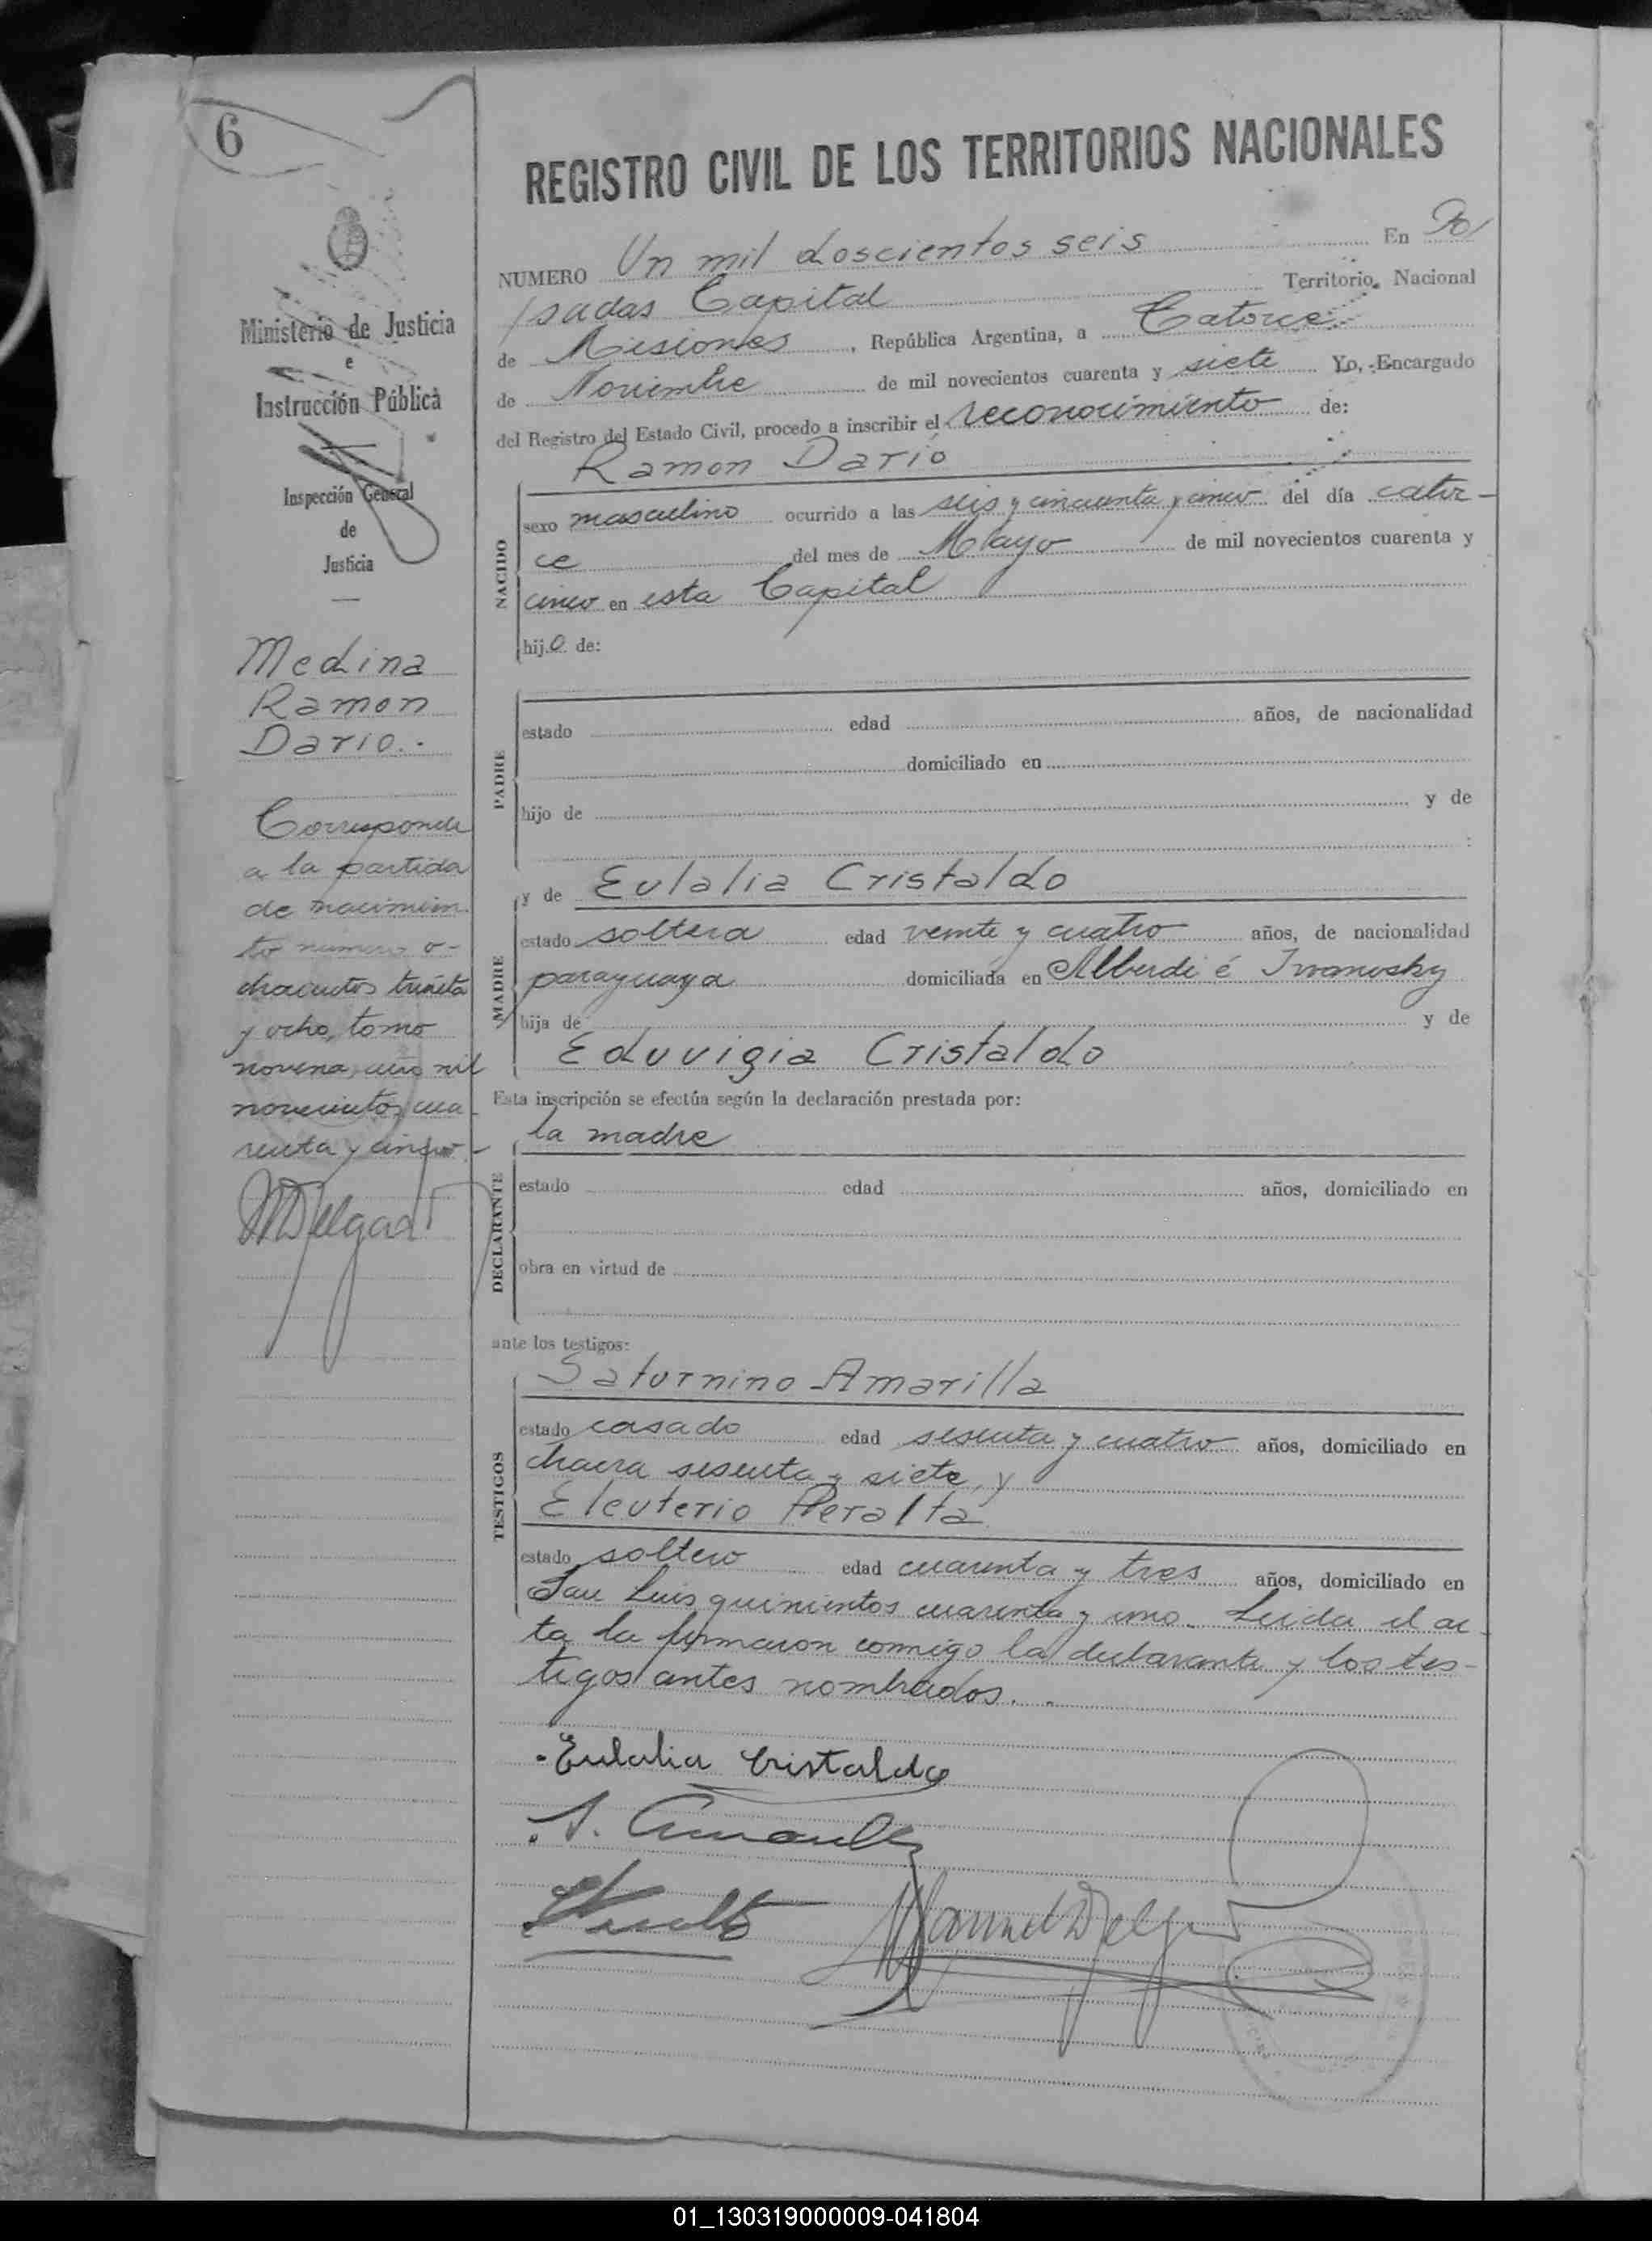 6
Ministerio de Justicia
e
Instrucción Pública
Inspección General
de
Justicia
Medina
Ramon
Dario..
Corresponde
a la partida
de nacimien
to numero o-
chocientos treinta
y ocho, tomo
noveno, año mil
novecientos cua
renta y cinco.-
REGISTRO CIVIL DE LOS TERRITORIOS NACIONALES
NUMERO Un mil doscientos seis En Po/
/sadas Capital Territorio Nacional
de Misiones, República Argentina, a Catorce
de Noviembre de mil novecientos cuarenta y siete Yo, Encargado
del Registro del Estado Civil, procedo a inscribir el reconocimiento de:
Ramon Dario
NACIDO
sexo masculino ocurrido a las seis y cincuenta y cinco del día cator-
ce del mes de Mayo de mil novecientos cuarenta y
cinco en esta Capital
hijo de:
PADRE
estado edad años, de nacionalidad
domiciliado en
hijo de y de
:
MADRE
y de Eulalia Cristaldo
estado soltera edad veinte y cuatro años, de nacionalidad
paraguaya domiciliada en Alberdi é Ivanosky
hija de y de
Eduvigia Cristaldo
Esta inscripción se efectúa según la declaración prestada por:
DECLARANTE
la madre
estado edad años, domiciliado en
obra en virtud de
ante los testigos:
TESTIGOS
Saturnino Amarilla
estado casado edad sesenta y cuatro años, domiciliado en
chacra sesenta y siete, y
Eleuterio Peralta
estado soltero edad cuarenta y tres años, domiciliado en
San Luis quinientos cuarenta y uno. Leida el ac-
ta la firmaron conmigo la declarante y los tes-
tigos antes nombrados. . .
Eulalia Cristaldo
01_130319000009-041804